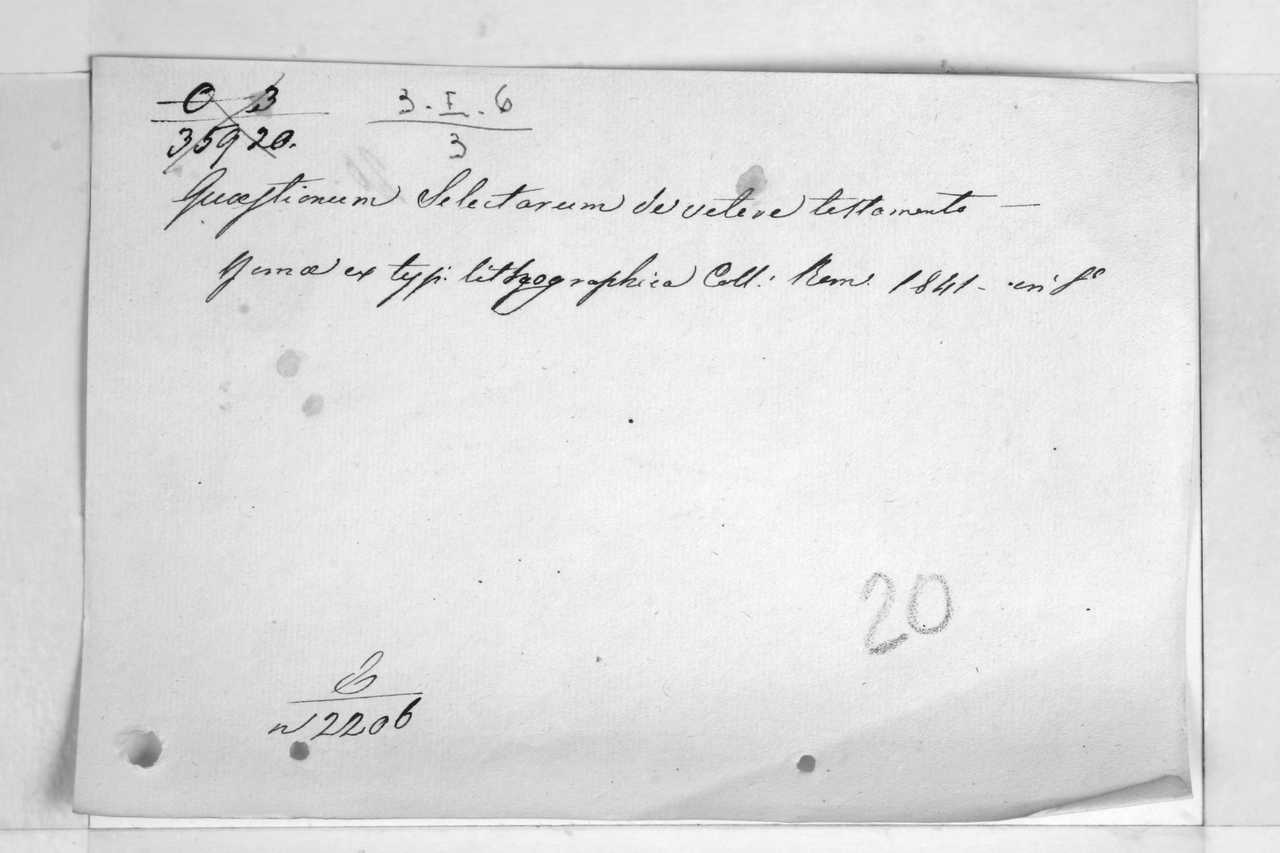 O B 3. I. 6
35920. 3
Quæstionum Selectarum de vetere testamento —
Romæ ex typ: lithographica Coll: Rom: 1841 - in f°
20
n 2206